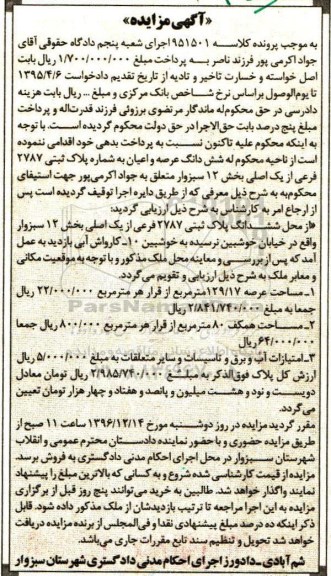 «آگهی مزایده»
به موجب پرونده کلاسه ۹۵۱۵۰۱ اجرای شعبه پنجم دادگاه حقوقی آقای
جواد اکرمی پور فرزند ناصر به پرداخت مبلغ ۱/۷۰۰/۰۰۰/۰۰۰ ریال بابت
اصل خواسته و خسارت تاخیر و تادیه از تاریخ تقدیم دادخواست ۱۳۹۵/۴/۶
تا یوم‌الوصول براساس نرخ شاخص بانک مرکزی و مبلغ ... ریال بابت هزینه
دادرسی در حق محکوم‌له ماندگار مرتضوی برزوئی فرزند قدرت‌اله و پرداخت
مبلغ پنج درصد بابت حق‌الاجرا در حق دولت محکوم گردیده است. با توجه
به اینکه محکوم علیه تاکنون نسبت به پرداخت بدهی خود اقدامی ننموده
است از ناحیه محکوم له شش دانگ عرصه و اعیان به شماره پلاک ثبتی ۲۷۸۷
فرعی از یک اصلی بخش ۱۲ سبزوار متعلق به جواد اکرمی‌پور جهت استیفای
محکوم‌به به شرح ذیل معرفی که از طریق دایره اجرا توقیف گردیده است پس
از ارجاع امر به کارشناس به شرح ذیل ارزیابی گردید:
*از محل ششدانگ پلاک ثبتی ۲۷۸۷ فرعی از یک اصلی بخش ۱۲ سبزوار
واقع در خیابان خوشبین نرسیده به خوشبین ۱۰-کارواش آبی بازدید به عمل
آمد که پس از بررسی و معاینه محل ملک مذکور و با توجه به موقعیت مکانی
و معابر ملک به شرح ذیل ارزیابی و تقویم می‌گردد.
۱-مساحت عرصه ۱۲۹/۱۷مترمربع از قرار هر مترمربع ۲۲/۰۰۰/۰۰۰ ریال
جمعا به مبلغ ۲/۸۴۱/۷۴۰/۰۰۰ریال
۲-مساحت همکف ۸۰مترمربع از قرار هر مترمربع ۸۰۰/۰۰۰ ریال جمعا
۶۴/۰۰۰/۰۰۰ریال
۳-امتیازات آب و برق و تاسیسات و سایر متعلقات به مبلغ ۵/۰۰۰/۰۰۰ ریال
ارزش کل پلاک فوق‌الذکر به مبلغ ۲/۹۸۵/۷۴۰/۰۰۰ ریال تومان معادل
دویست و نود و هشت میلیون و پانصد و هفتاد و چهار هزار تومان تعیین
می‌گردد.
مقرر گردید مزایده در روز دوشنبه مورخ ۱۳۹۶/۱۲/۱۴ ساعت ۱۱ صبح از
طریق مزایده حضوری و با حضور نماینده دادستان محترم عمومی و انقلاب
شهرستان سبزوار در محل اجرای احکام مدنی دادگستری به فروش برسد.
مزایده از قیمت کارشناسی شده شروع و به کسانی که بالاترین مبلغ را پیشنهاد
نمایند واگذار خواهد شد. طالبین به خرید می‌توانند پنج روز قبل از برگزاری
مزایده به این اجرا مراجعه تا ترتیب بازدیدشان از ملک مذکور داده شود. قابل
ذکر اینکه ده درصد مبلغ پیشنهادی نقدا و فی‌المجلس از برنده مزایده دریافت
خواهد شد تحویل و تنظیم سند تابع مقررات جاری می‌باشد.
شم آبادی-دادورز اجرای احکام مدنی دادگستری شهرستان سبزوار